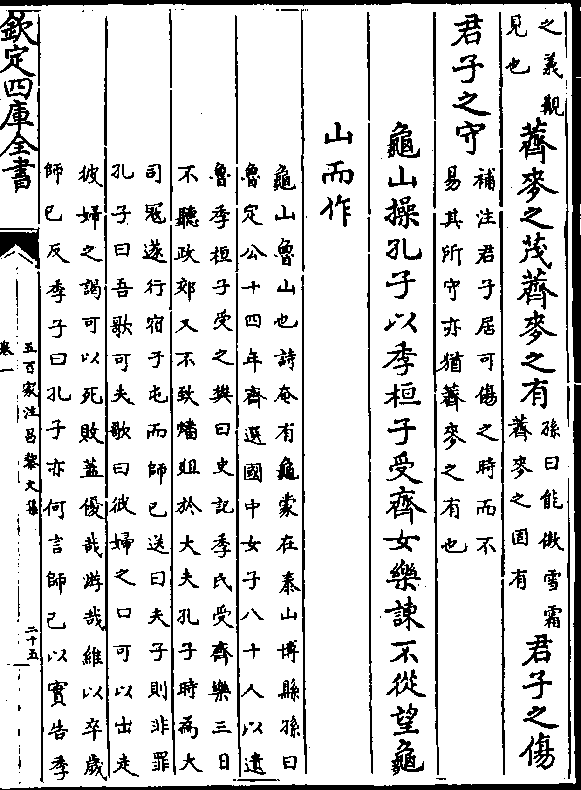 之義觀
見也
薺麥之茂薺麥之有
孫曰能傲雪霜
薺麥之固有
君子之傷
君子之守
補注君子居可傷之時而不
易其所守亦猶薺麥之有也
龜山操孔子以季桓子受齊女樂諫不從望龜
山而作
龜山魯山也詩奄有龜蒙在泰山博縣孫曰
魯定公十四年齊選國中女子八十人以遺
魯季桓子受之樊曰史記季氏受齊樂三日
不聽政郊又不致膰俎於大夫孔子時為大
司冦遂行宿于屯而師已送曰夫子則非罪
孔子曰吾歌可夫歌曰彼婦之口可以出走
彼婦之謁可以死敗蓋優哉游哉維以卒歲
師已反季子曰孔子亦何言師己以實告季
欽定四庫全書
五百家注昌黎文集
卷一
二十五